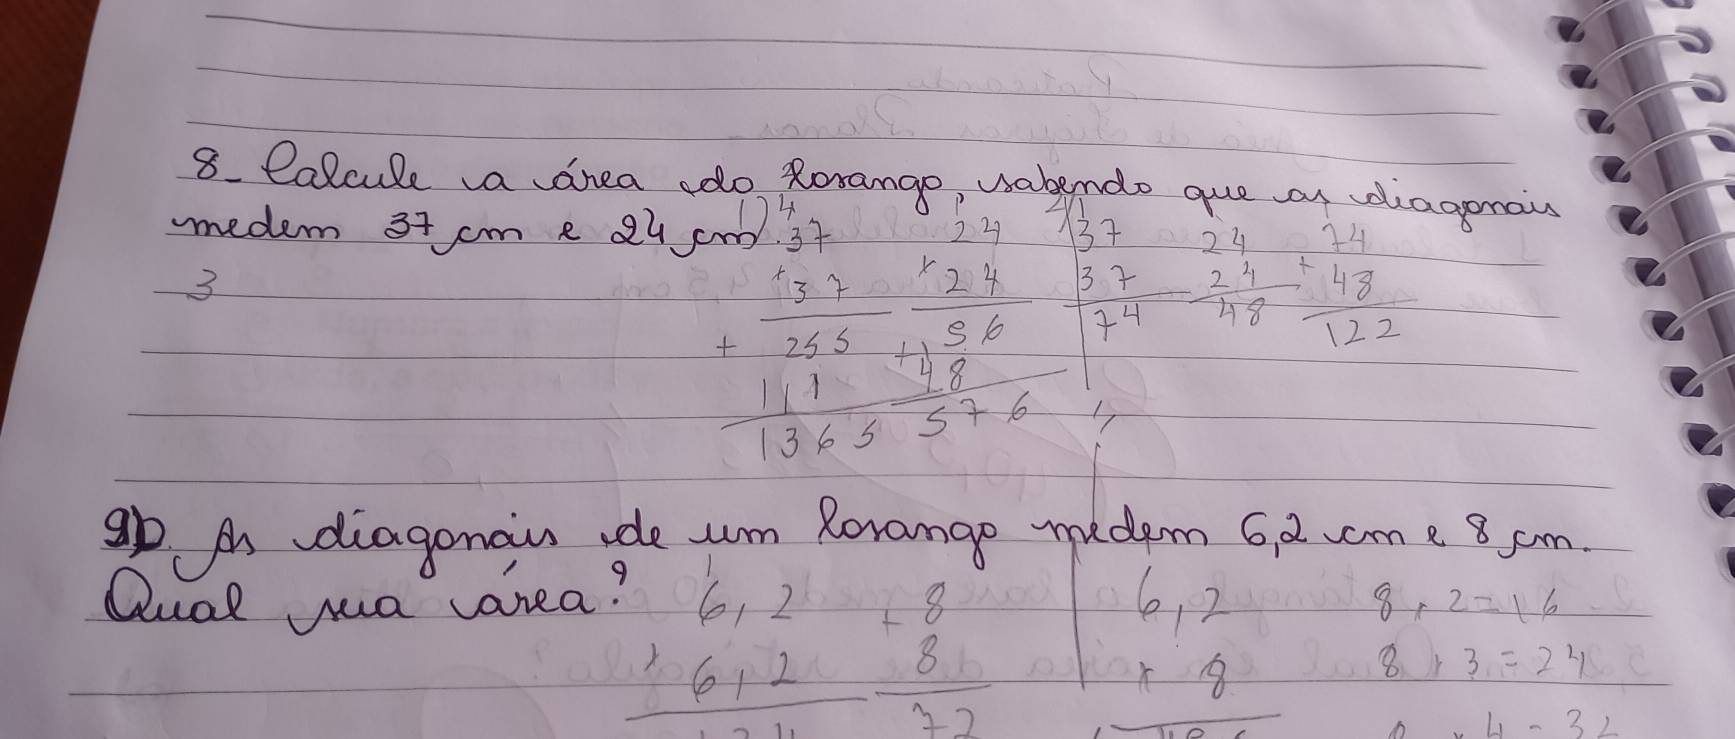 8- Calcule a área do Losango, sabendo que as diagonais
medem 37 cm e 24 cm.
1) 4 37 1 24 2) 1 37 24 74
3 x 37 x 24 37 24 + 48
+ 255 56 74 48 122
111 + 48
1365 576
9) As diagonais de um Losango medem 6,2 cm e 8 cm.
Qual sua área? 6,2 + 8 6,2 8 x 2 = 16
x 6,2 8 x 8 8 x 3 = 24
x 4 = 32